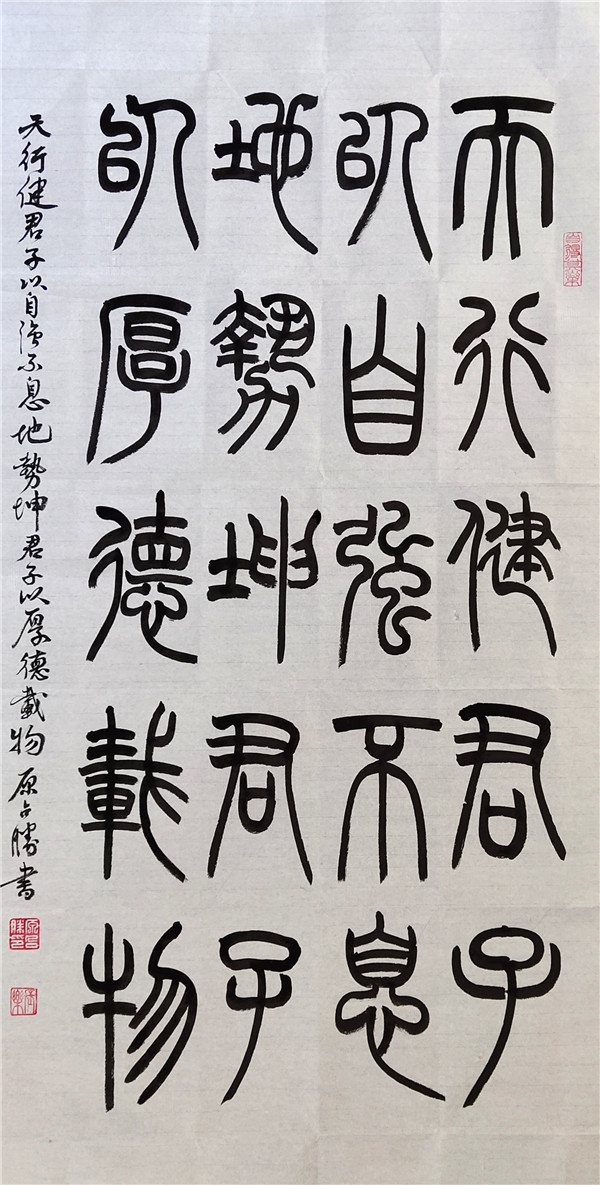 天行健君子
以自强不息
地势坤君子
以厚德載物
天行健君子以自强不息地势坤君子以厚德載物 原占勝書